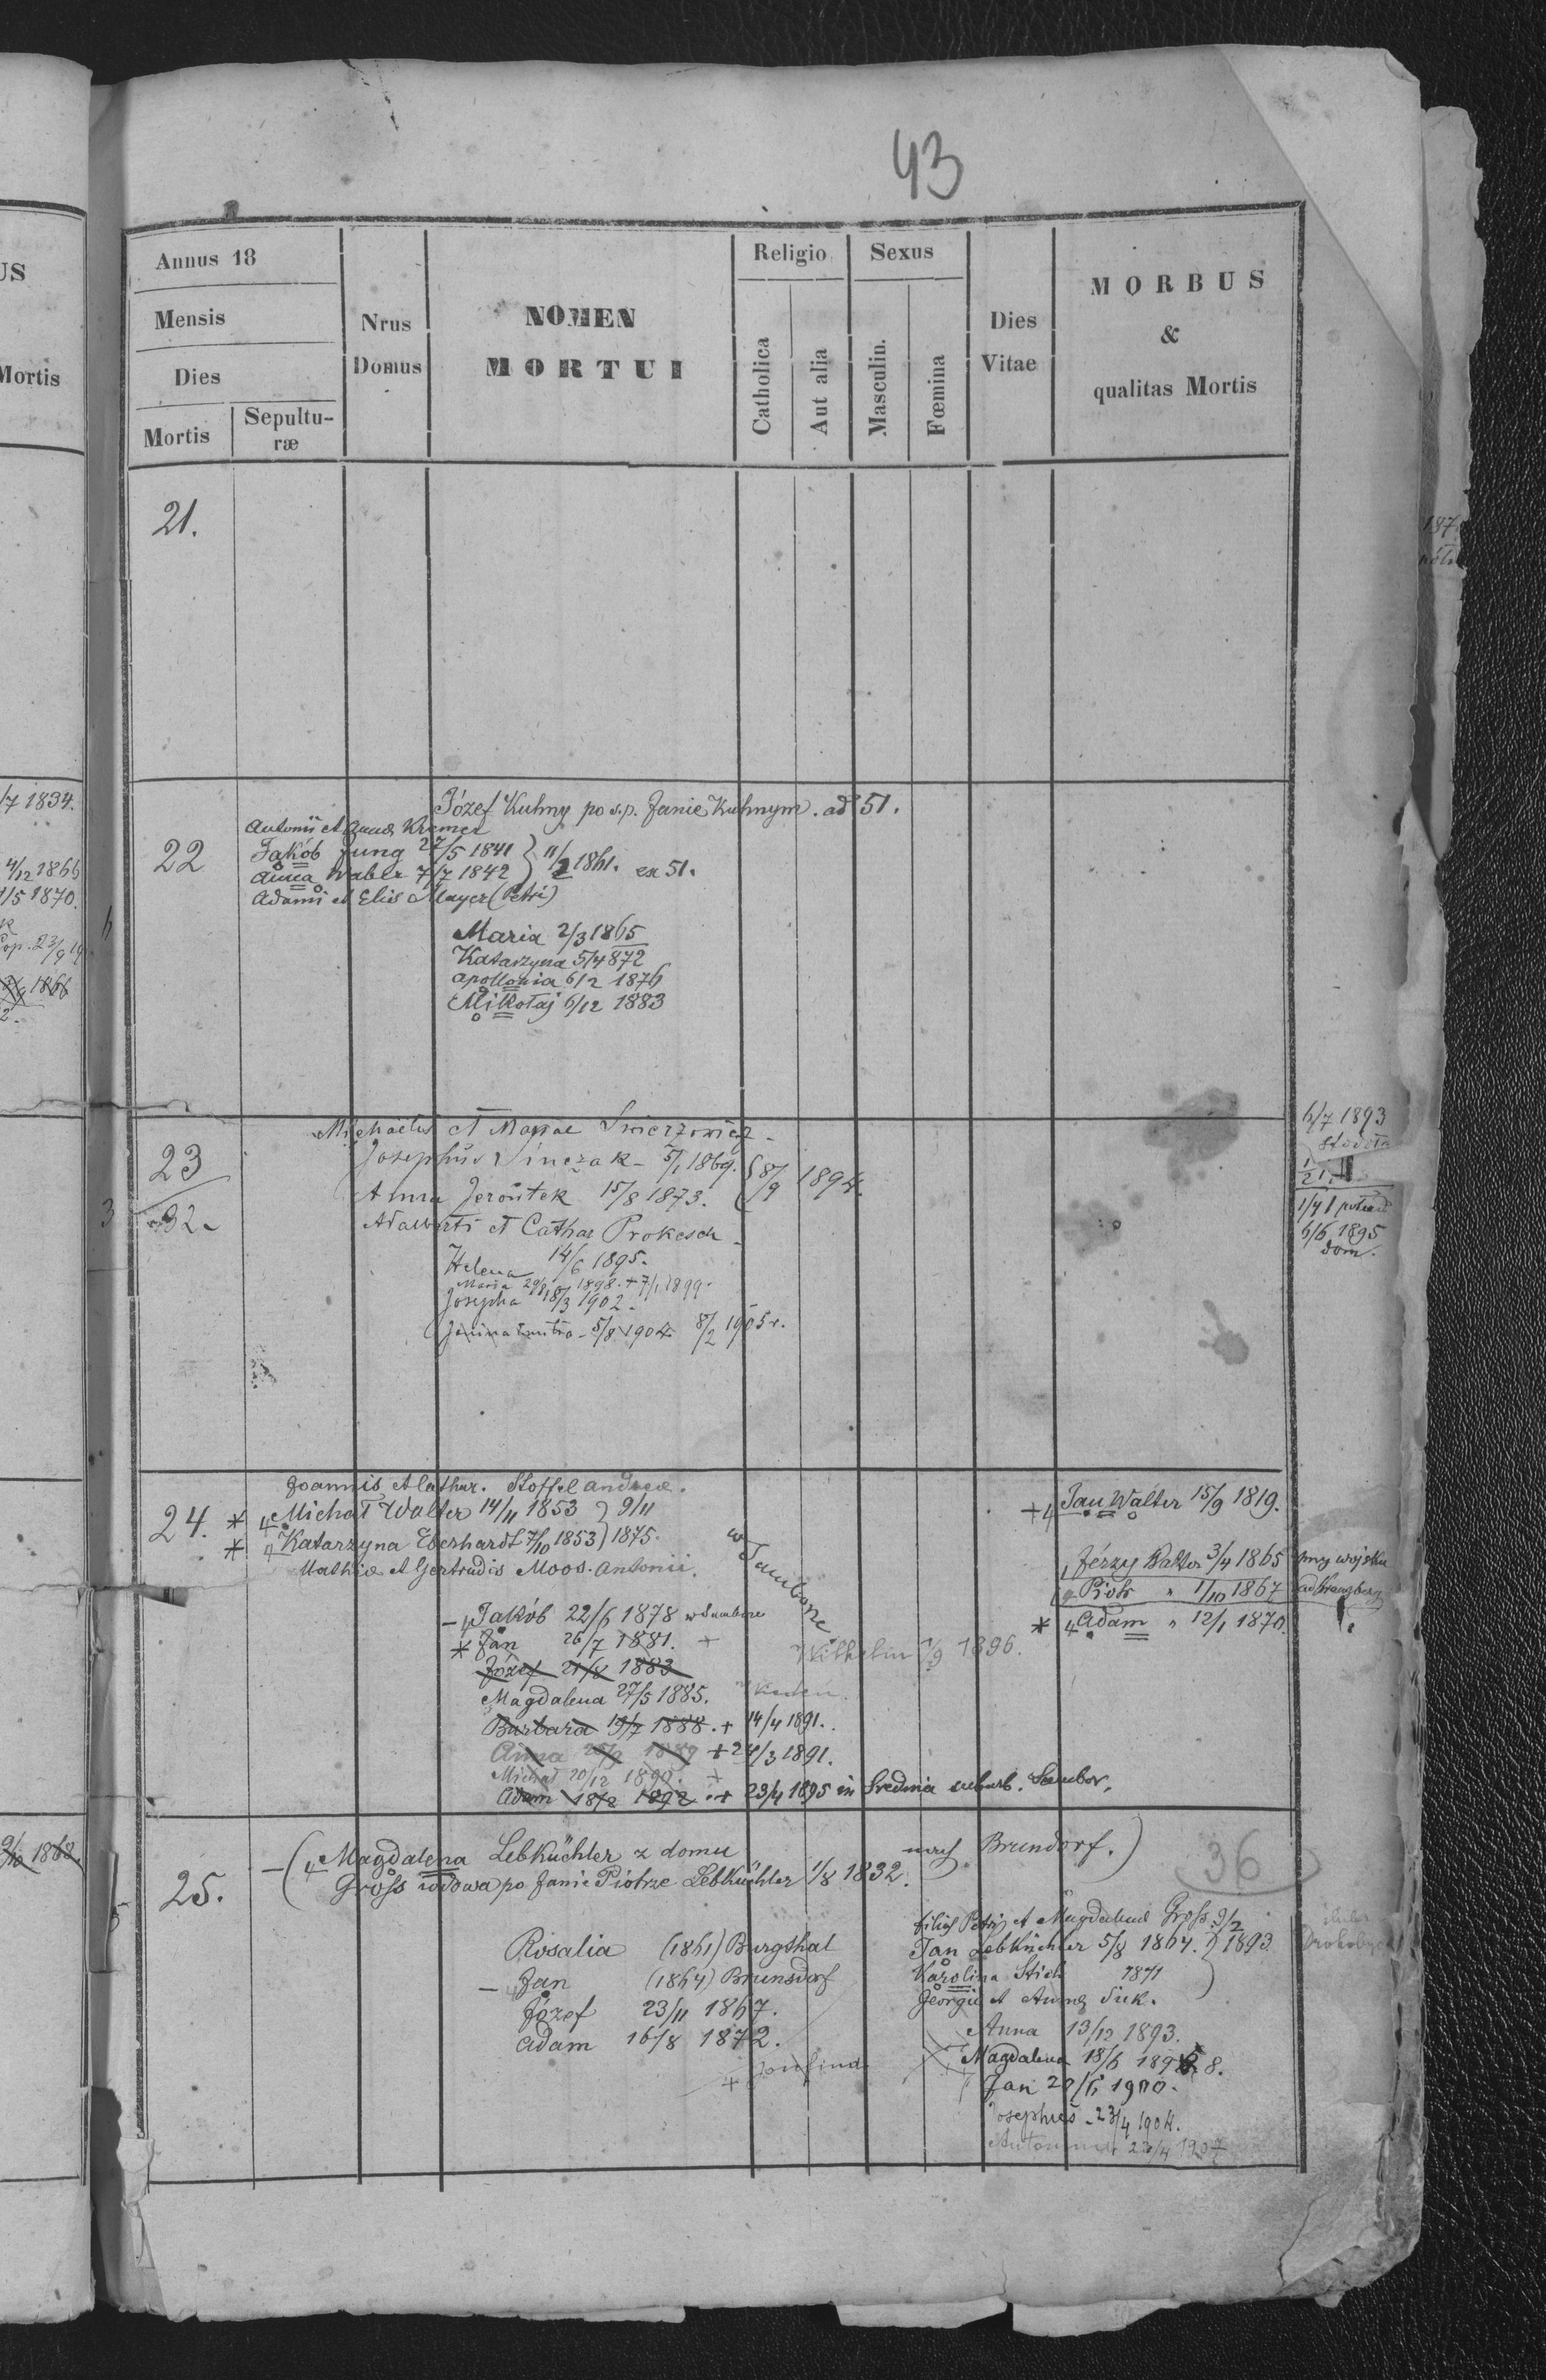 43
US
Mortis
/7 1834.
4/12 1866
1/5 1870.
Cop. 23/9 19
1866
9/10 1868.
Annus 18
Mensis
Dies
Mortis
Sepultu-
ræ
Nrus
Domus
NOMEN
MORTUI
Religio
Catholica
Aut alia
Sexus
Masculin.
Fœmina
Dies
Vitae
MORBUS
&
qualitas Mortis
21.
22
Józef Kuhny po s.p. Janie Kuhnym. ad 51.
Antonii et Annæ Kremer
Jakób Jung 27/5 1841 } 11/2 1861. ex 51.
Anna Waber 7/7 1842
Adami et Elis Mayer (Petri)
Maria 2/3 1865
Katarzyna 5/4 872
Apollonia 6/2 1876
Mikołaj 6/12 1883
23
32.
Michaelis et Mariae Swierzowicz
Josephus Sinczak - 5/1 1869. } 8/9 1894.
Anna Jeroutek 15/8 1873.
Adalberti et Cathar Prokesch
Helena 14/6 1895.
Maria 29/8 1898. + 7/1 1899.
Josepha 18/3 1902.
Janina - 5/8 1904. 8/2 1905 r.
6/7 1893
stodoła
1/21
1/41
6/6 1895
dom.
24.
Joannis et Cathar. Stoffel Andreæ.
* 4 Michał Walter 14/11 1853 } 9/11
* 4 Katarzyna Eberhardt 7/10 1853 } 1875.
Mathiæ et Gertrudis Moos. Antonii.
w Samborze
- 4 Jakób 22/6 1878 w Samborze
* Jan 26/7 1881. +
Józef 21/8 1883
Magdalena 27/5 1885.
Barbara 19/7 1888. + 14/4 1891.
Anna 25/9 1889 + 24/3 1891.
Michał 20/12 1890. +
Adam 18/2 1892 + 23/4 1895 in Srednia suburb. Sambor.
Wilhelm 1/9 1896.
+ 4 Jan Walter 15/9 1819.
Jérzy Walter 3/4 1865 przy wojsku
Piotr " 1/10 1867 ad Kranzberg
* 4 Adam " 12/1 1870.
25.
- ( 4 Magdalena Lebküchler z domu
Gross wdowa po Janie Piotrze Lebküchler 1/8 1832.
Brundorf. )
36
Rosalia (1861) Burgthal
- 4 Jan (1864) Brunsdorf
Józef 23/11 1867.
Adam 16/8 1872.
filius Petri et Magdalenæ Gross. 9/2
Jan Lebküchler 5/8 1864. } 1893
Karolina Stich 1871
Georgii et Annæ Suk.
Anna 13/12 1893.
Magdalena 18/6 1898.
Jan 20/6 1900.
Josephus - 23/4 1904.
Antonina 23/4 1907